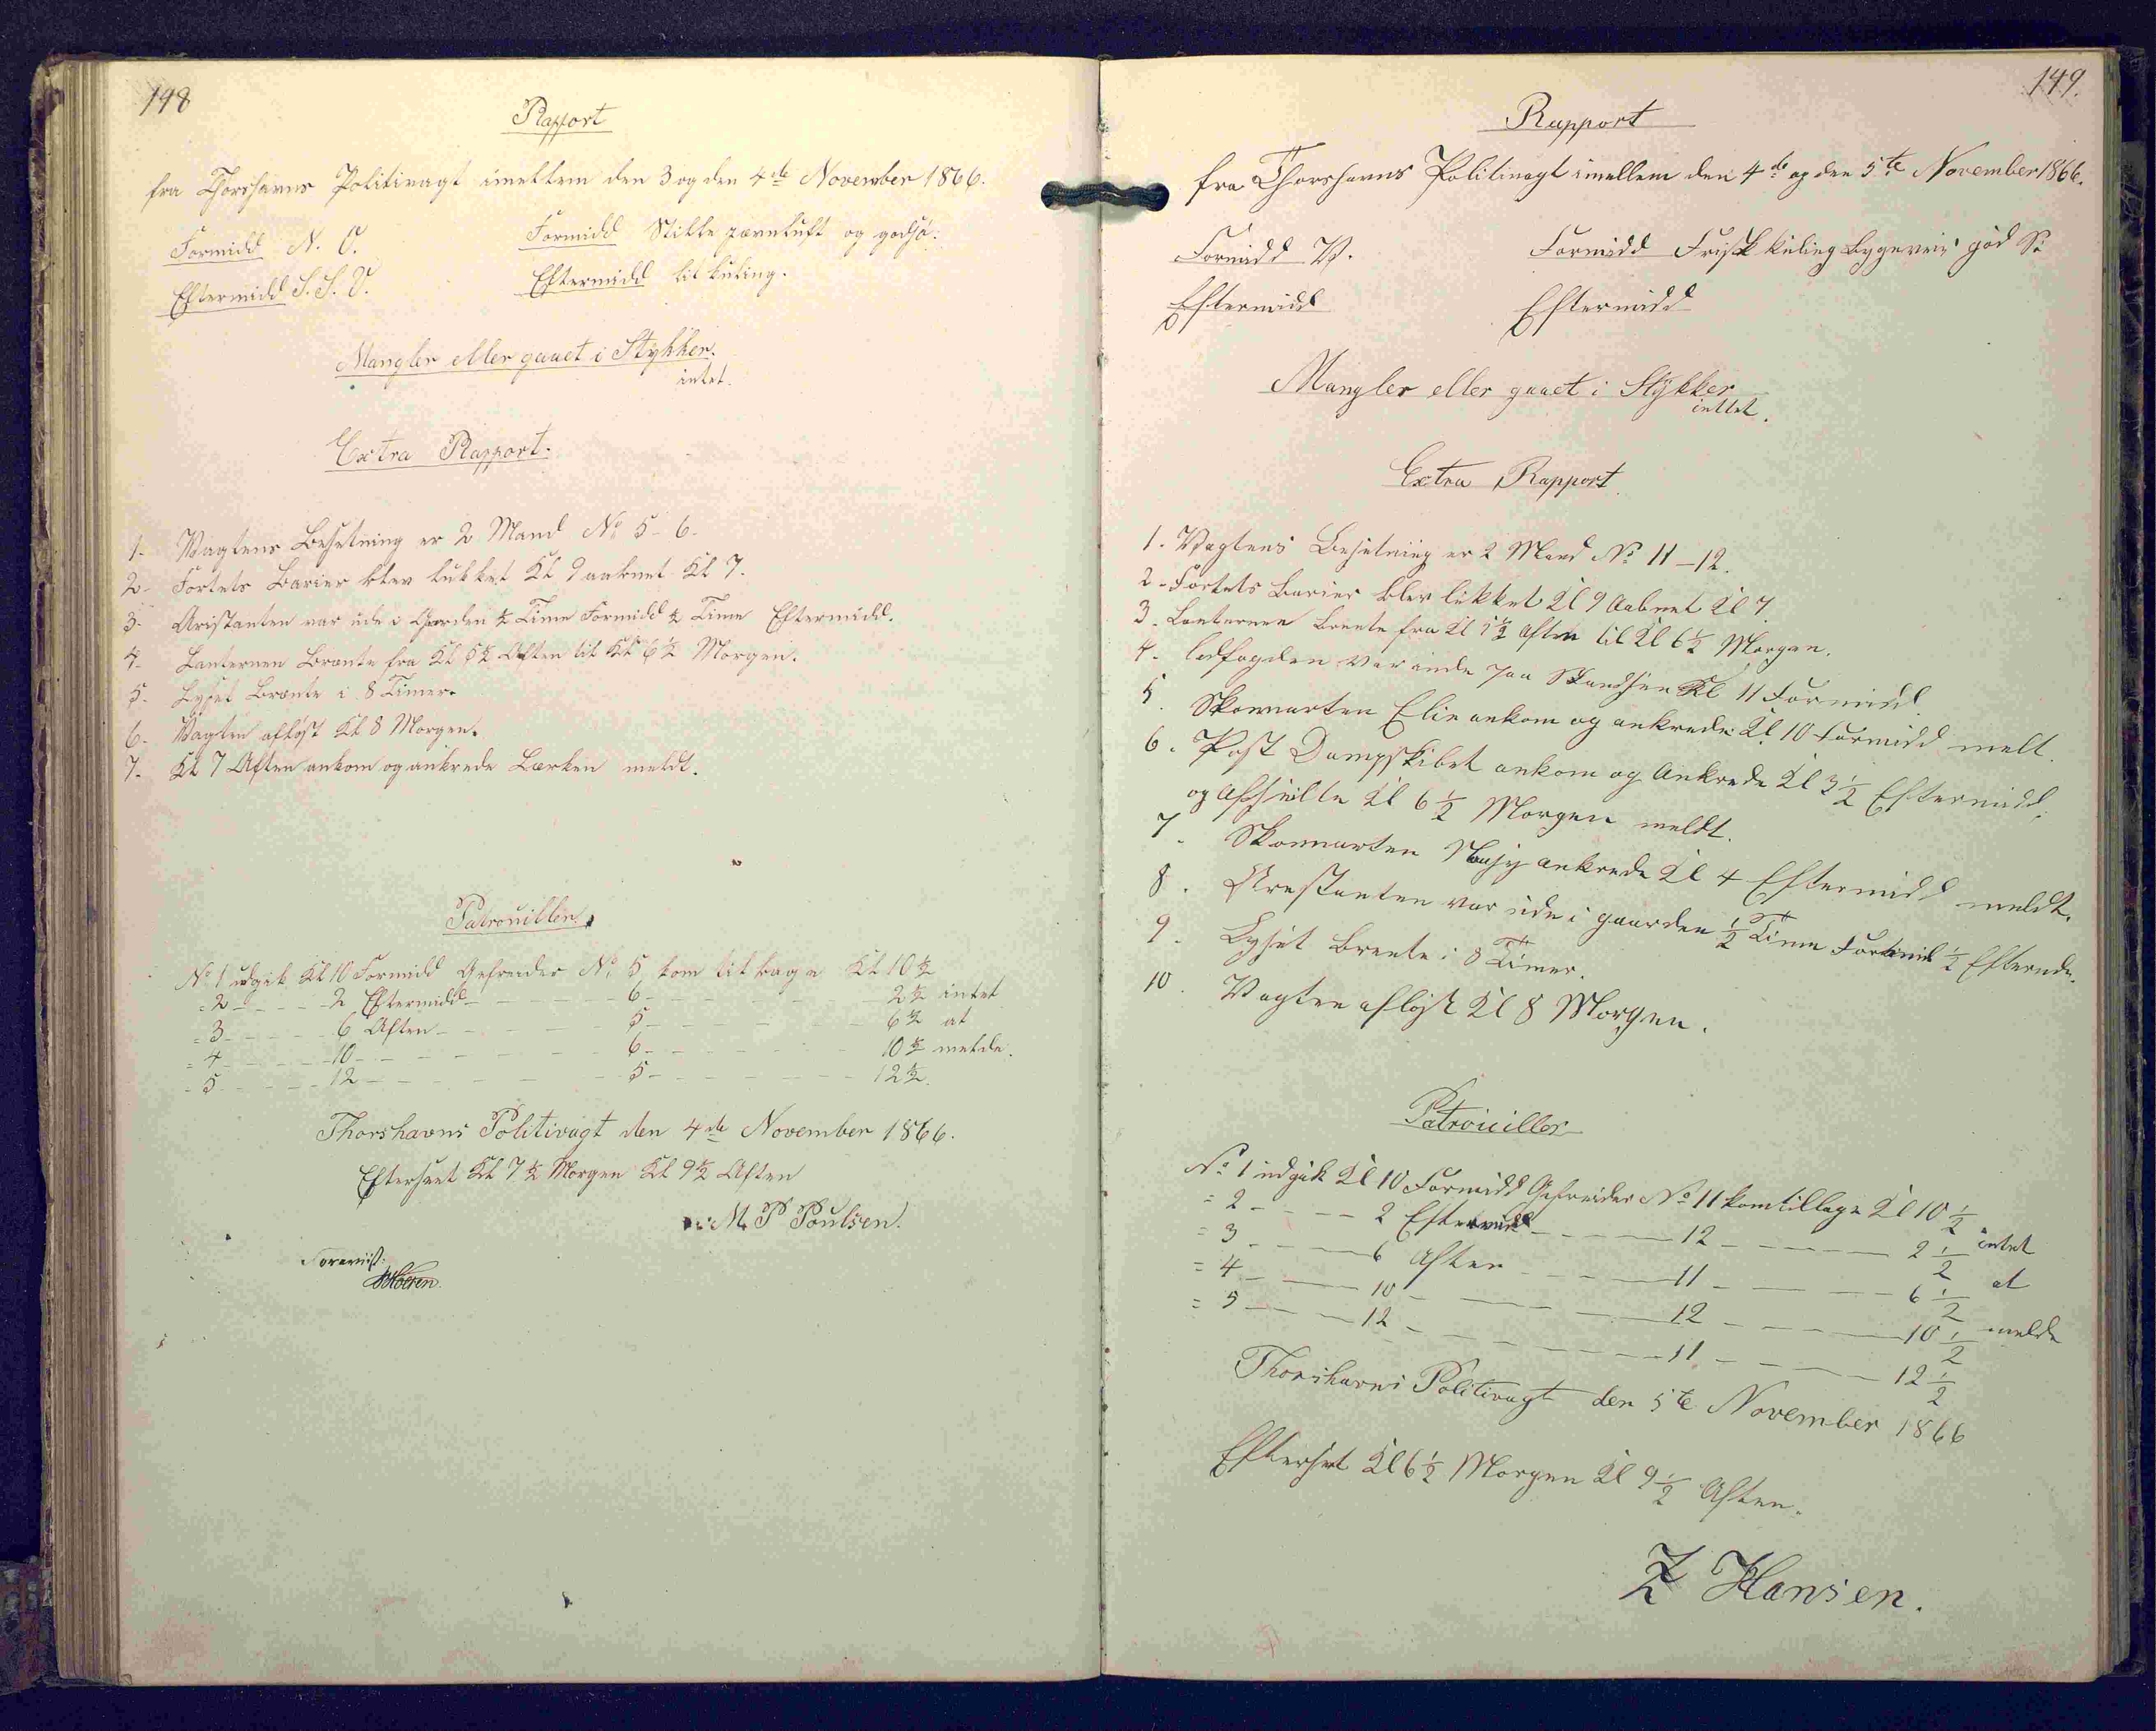 148
Rapport
fra Thorshavns Politivagt imellem den 3 og den 4de November 1866.
Formidd N. O. Formidd Stille jævnluft og godsø.
Eftermidd S. S. V. Eftermidd lit kuling.
Mangler eller gaaet i Stykker.
intet.
Extra Rapport.
1. Vagtens Besætning er 2 Mand No 5 - 6.
2. Fortets Barier blev lukket Kl 9 aabnet Kl 7.
3. Aristanten var ude i Gaarden ½ Time Formidd ½ Time Eftermidd.
4. Lanternen Brænte fra Kl 5½ Aften til Kl 6½ Morgen.
5. Lyset Brænte i 8 Timer.
6. Vagten afløst Kl 8 Morgen.
7. Kl 7 Aften ankom og ankrede Lærken meldt.
Patrouiller.
No 1 udgik Kl 10 Formidd Gefreider No 5 kom tilbage Kl 10½
= 2 - - - - 2 Eftermidd - - - - - 6 - - - - - 2½ intet
= 3 - - - - 6 Aften - - - - - 5 - - - - - 6½ at
= 4 - - - - 10 - - - - - 6 - - - - - 10½ melde.
= 5 - - - - 12 - - - - - 5 - - - - - 12½.
Thorshavns Politivagt den 4de November 1866.
Efterseet Kl 7½ Morgen Kl 9½ Aften
M. P. Poulsen.
Foreviist:
149.
Rapport
fra Thorshavns Politivagt imellem den 4de og den 5te November 1866.
Formidd V. Formidd Frisk kuling Bygeveir god Sø
Eftermidd Eftermidd
Mangler eller gaaet i Stykker
inttet.
Extra Rapport
1. Vagtens Besætning er 2 Mand No 11 - 12.
2. Fortets Barier blev lukket Kl 9 Aabnet Kl 7
3. Lanternen brente fra Kl 5½ Aften til Kl 6½ Morgen.
4. var inde paa Skandsen Kl 11 Formidd
5. Skonnarten Elin ankom og ankrede Kl 10 Formidd melt.
6. Post Dampskibet ankom og Ankrede Kl 3½ Eftermidd,
og Afseilte Kl 6½ Morgen meldt.
7. Skonnarten ankrede Kl 4 Eftermidd meldt.
8. Arestanten var ude i gaarden ½ Time Formid ½ Eftermdd.
9. Lyset brente i 8 Timer.
10. Vagten afløst Kl 8 Morgen.
Patrouiller
No 1 udgik Kl 10 Formidd Gefreider No 11 kom tilbage Kl 10½
= 2 - - - - 2 Eftermidd - - - - 12 - - - - - 2½ intet
= 3 - - - - 6 Aften - - - - 11 - - - - - 6½ at
= 4 - - - - 10 - - - - - 12 - - - - - 10½ melde
= 5 - - - - 12 - - - - - 11 - - - - - 12½
Thorshavns Politivagt den 5te November 1866
Efterset Kl 6½ Morgen Kl 9½ Aften.
Z Hansen.